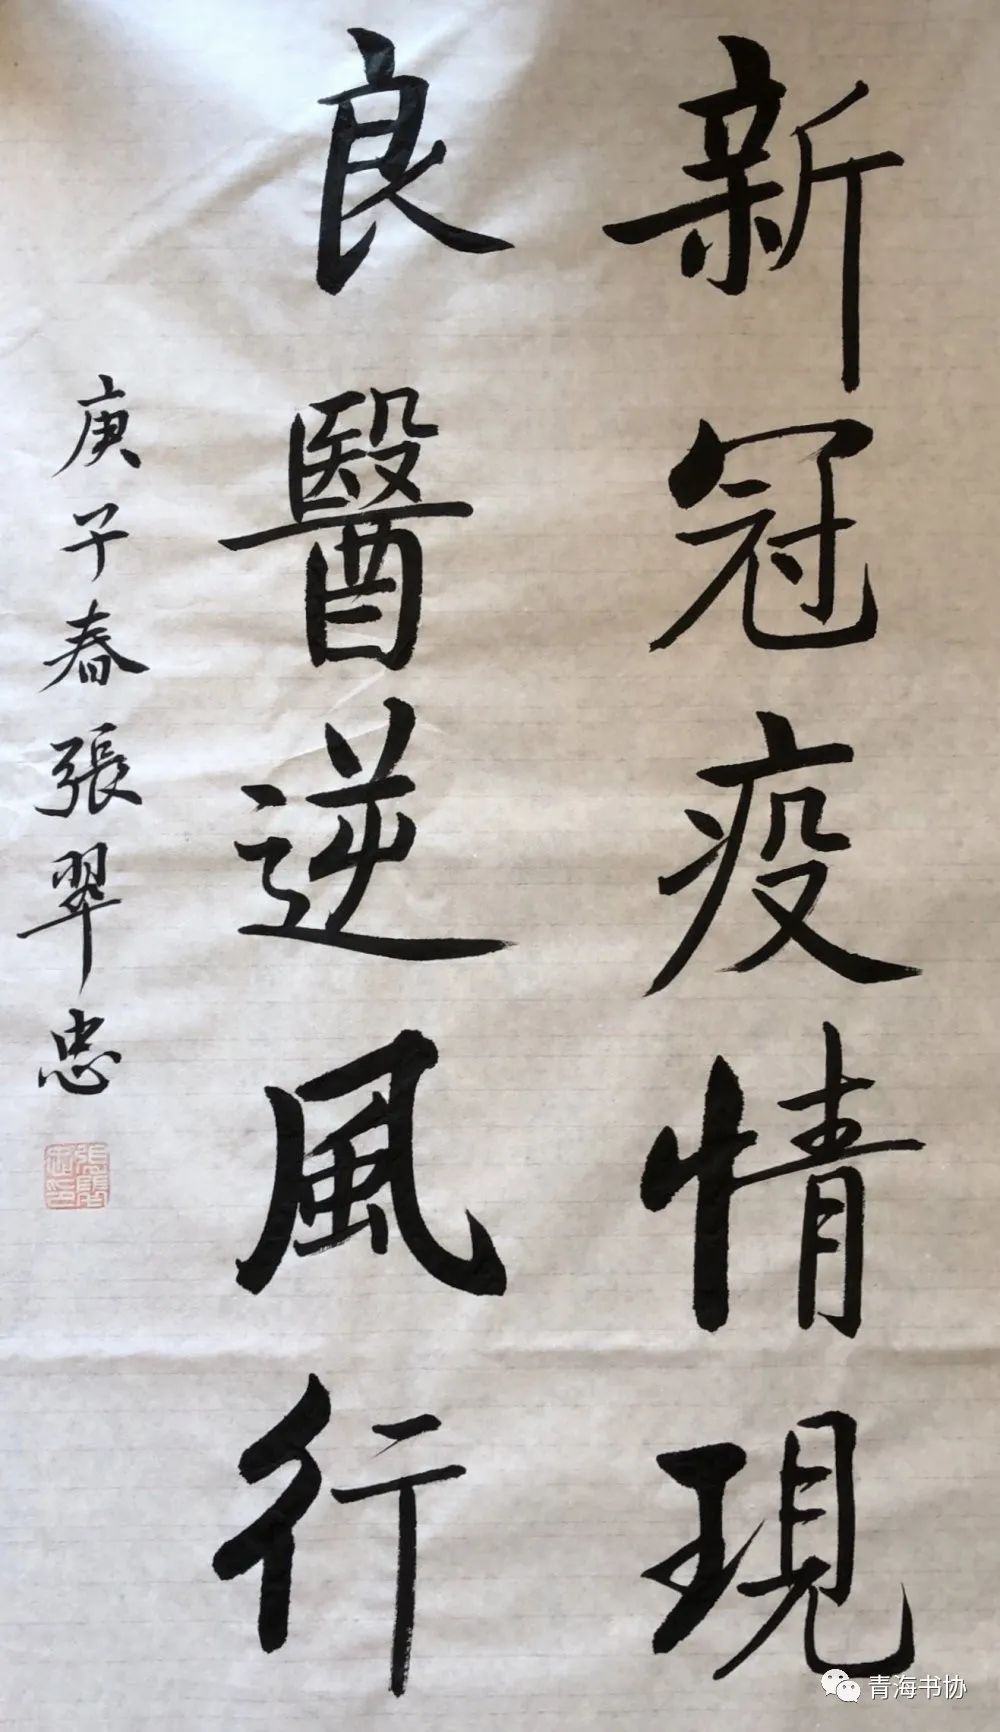 新冠疫情現
良醫逆風行
庚子春張翠忠
青海书协